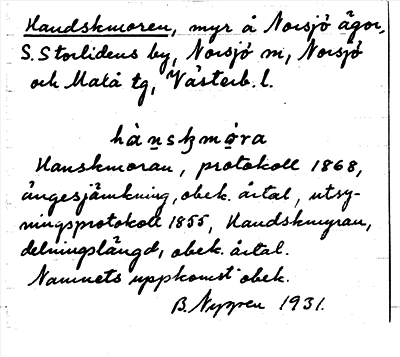 Handskmoren, myr å Norsjö ägor,
S. Storlidens by, Norsjö sn, Norsjö
och Malå tg, Västerb. l.
hànskmóra
Hanskmoran, protokoll 1868,
ängesjämkning, obek. årtal, utsy-
ningsprotokoll 1855, Handskmyran,
delningslängd, obek. årtal.
Namnets uppkomst obek.
B. Nygren 1931.